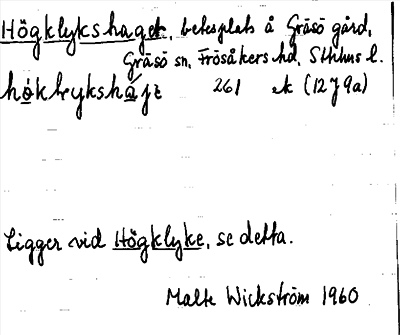 Högklykshaget, betesplats å Gräsö gård,
Gräsö sn, Frösåkers hd, Sthlms l.
261 ek (12 J 9a)
Ligger vid Högklyke, se detta.
Malte Wickström 1960